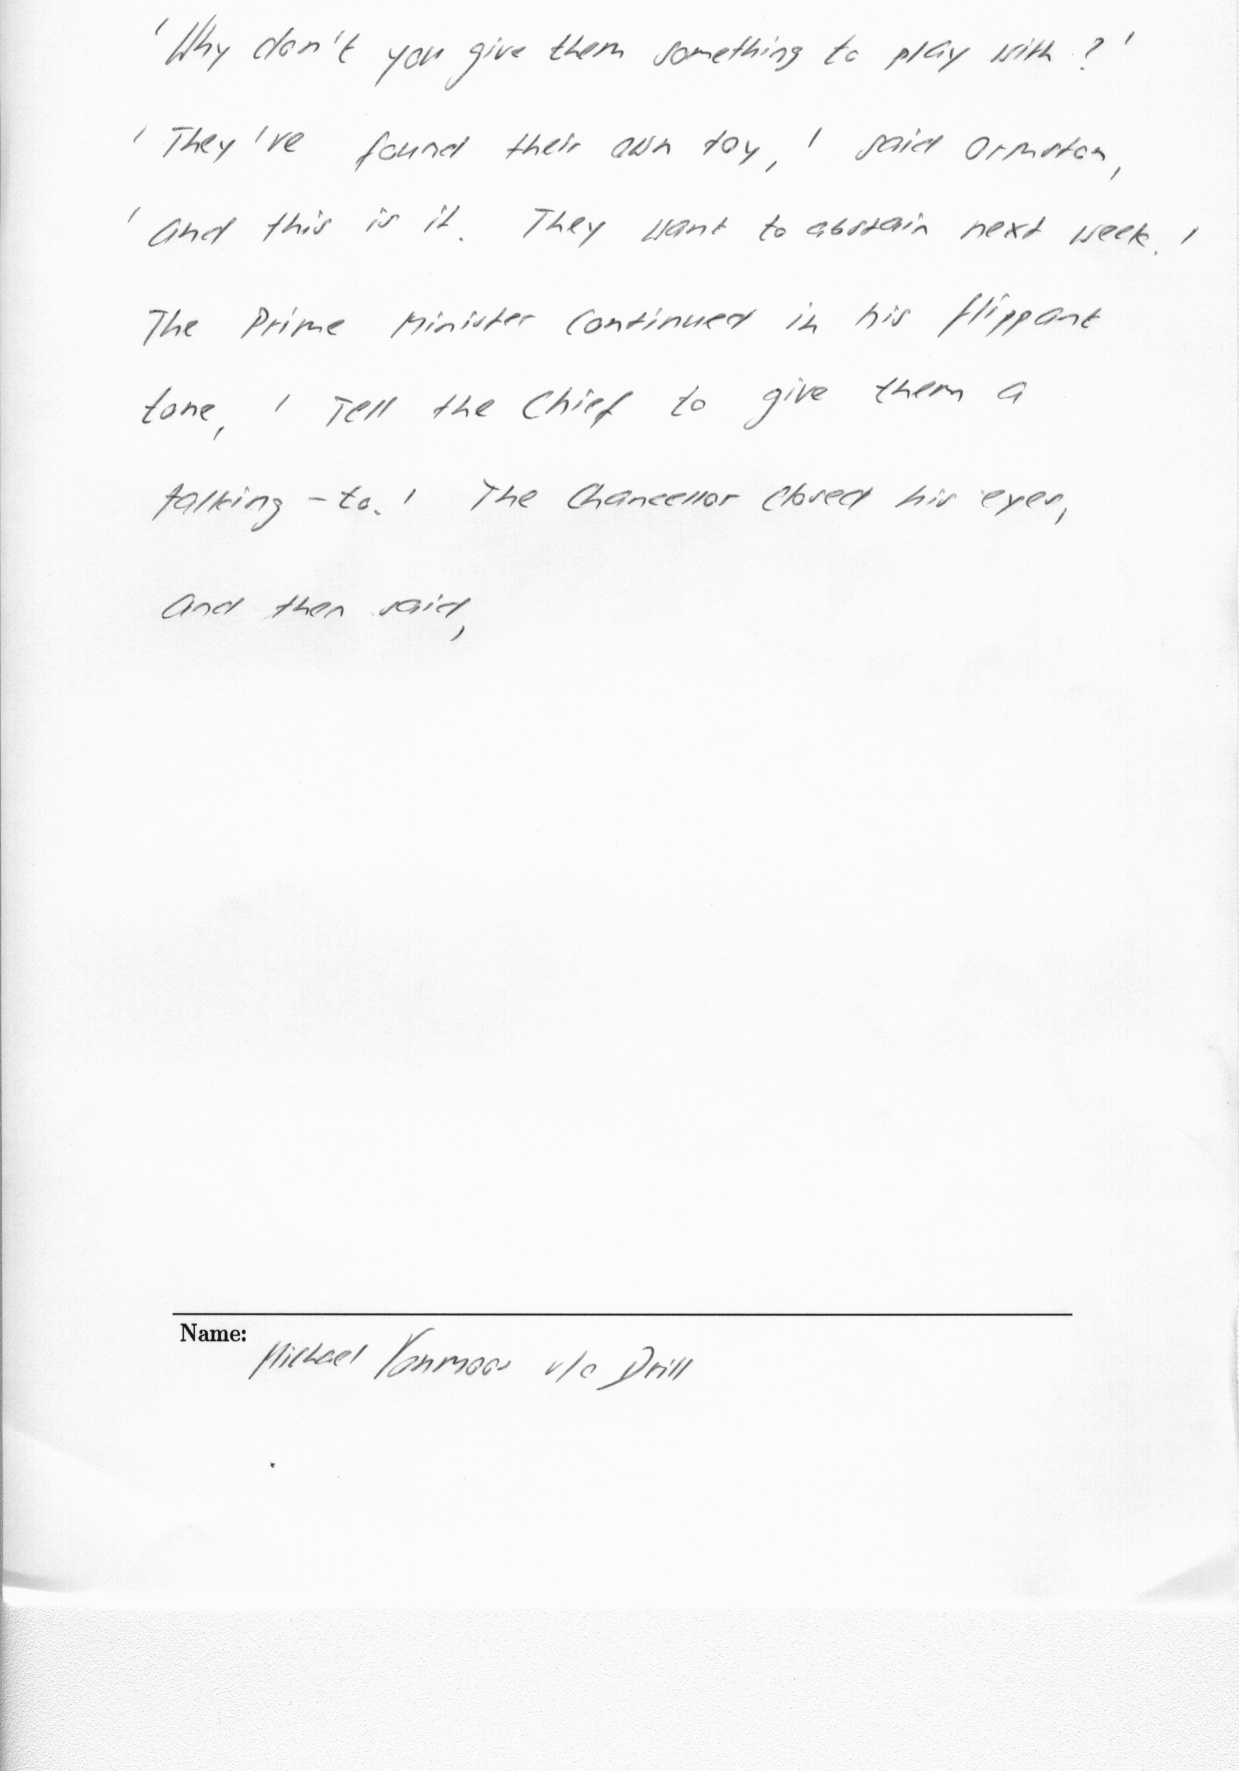 'Why don't you give them something to play with?'
'They've found their own toy,' said Ormston,
'and this is it. They want to abstain next week.'
The Prime Minister continued in his flippant
tone, 'Tell the Chief to give them a
talking-to.' The Chancellor closed his eyes,
and then said,
Name:
Michael v/o Drill